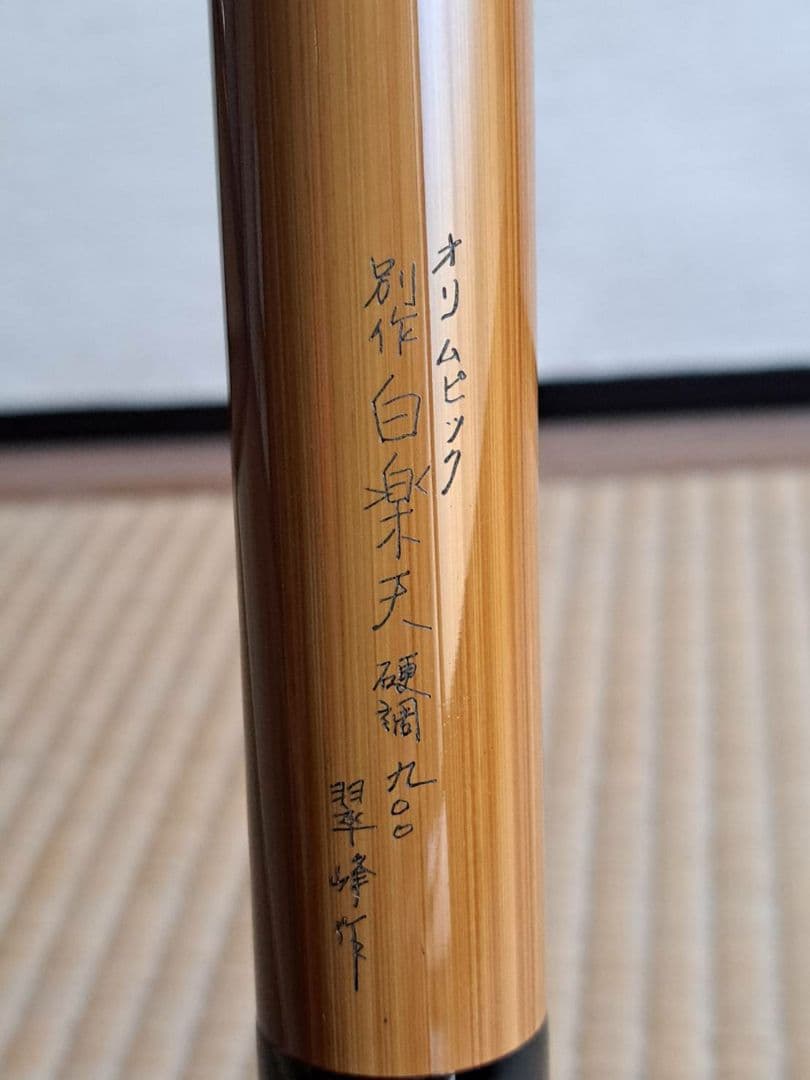 オリムピック
別作 白楽天 硬調 九〇〇
翠峰作